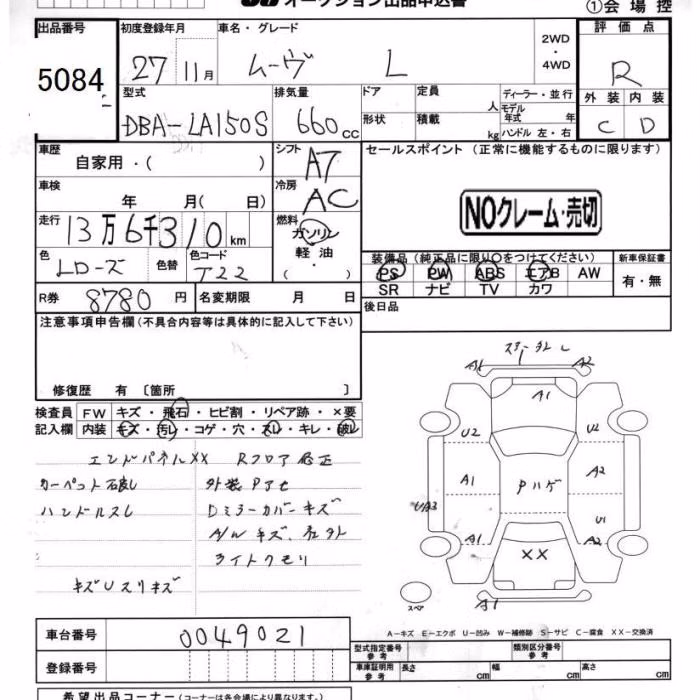 オークション出品申込書
①会場控
出品番号
5084
初度登録年月
27 11月
車名・グレード
ムーヴ L
2WD
・
4WD
評価点
R
外装 内装
C D
型式
DBA-LA150S
排気量
660cc
ドア
形状
定員 人
積載 kg
ディーラー・並行
モデル年式 年
ハンドル 左・右
車歴
自家用・( )
シフト
A7
セールスポイント (正常に機能するものに限ります)
NOクレーム・売切
車検
年 月( 日)
冷房
AC
走行
13万6千310km
燃料
ガソリン
軽油
・( )
色
Lローズ
色替
色コード
T22
装備品(純正品に限り○をつけてください)
PS PW ABS エアB AW
SR ナビ TV カワ
新車保証書
有・無
R券 8780円
名変期限 月 日
後日品
注意事項申告欄(不具合内容等は具体的に記入して下さい)
修復歴 有 〔箇所 〕
検査員記入欄
FW キズ・飛石・ヒビ割・リペア跡・×要
内装 キズ・汚レ・コゲ・穴・スレ・キレ・破レ
エンドパネルXX Rフロア修正
外装Pアセ
ハンドルスレ
Dミラーカバーキズ
A/W キズ
ライトクモリ
A1 A2
A1
U2 U2
A1 Pハゲ A2
U1
A1 XX A2
スペア
A1
A-キズ E-エクボ U-凹み W-補修跡 S-サビ C-腐食 XX-交換済
車台番号
0049021
登録番号
型式指定番号
参考
類別区分番号
参考
車庫証明用
参考
長さ cm
幅 cm
高さ cm
希望出品コーナー(コーナーは各会場により異なります。)